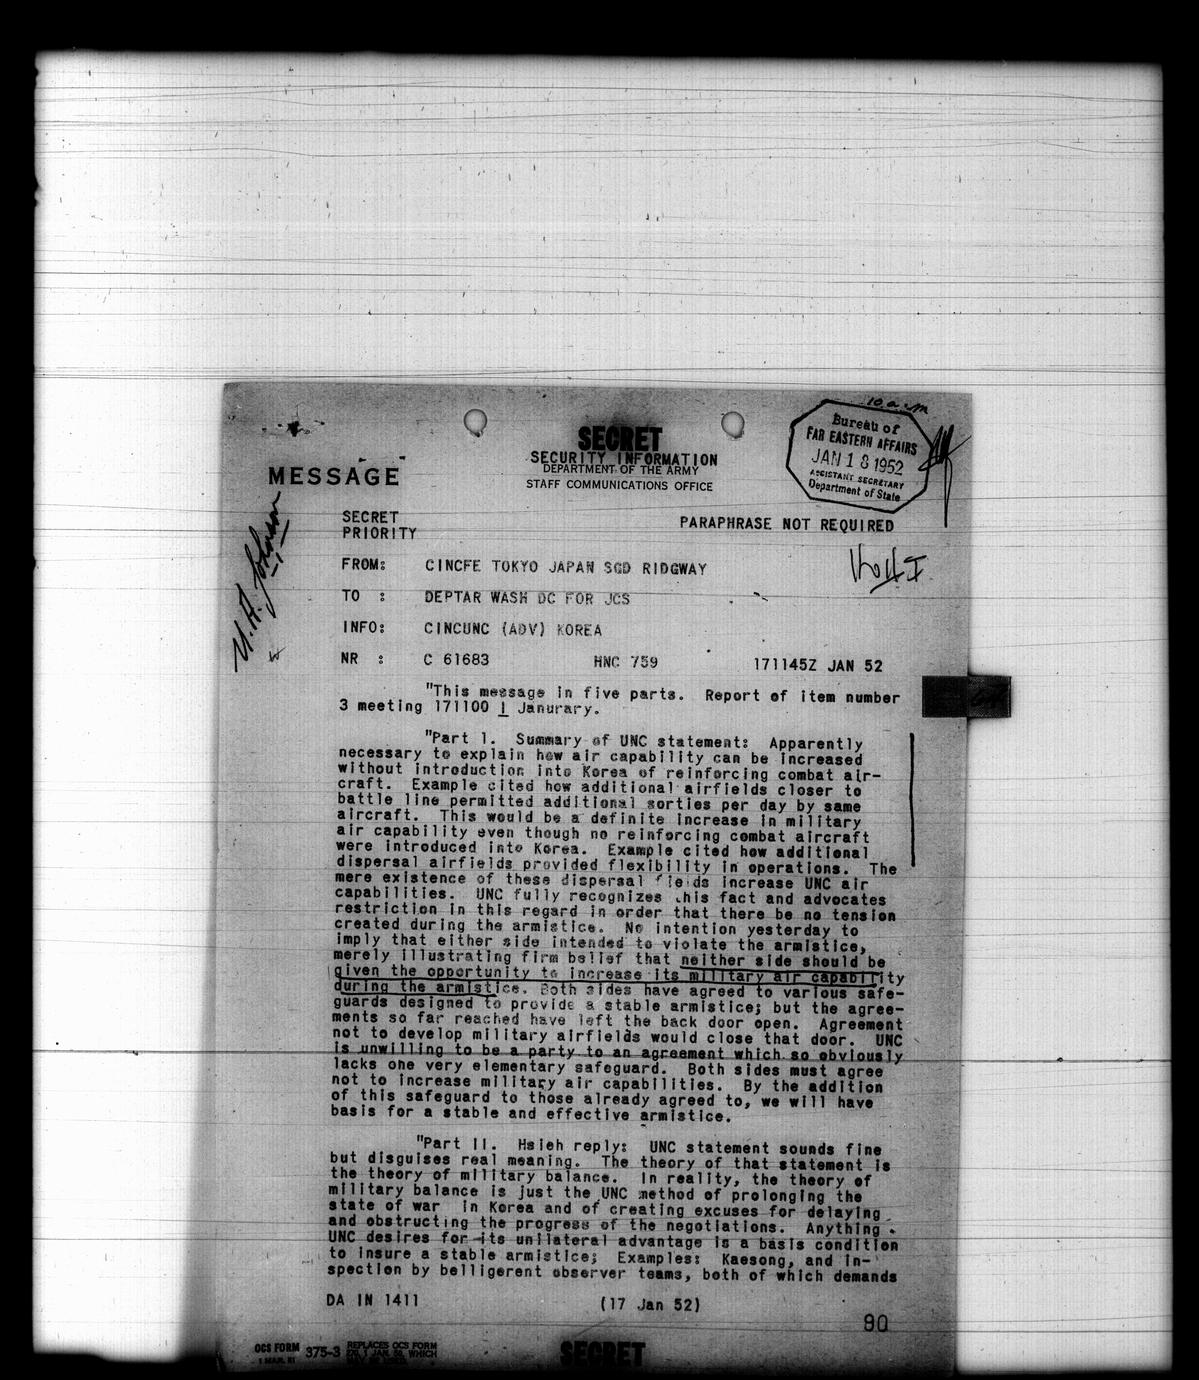 10 a.m
SECRET
SECURITY INFORMATION
DEPARTMENT OF THE ARMY
STAFF COMMUNICATIONS OFFICE
Bureau of
FAR EASTERN AFFAIRS
JAN 18 1952
ASSISTANT SECRETARY
Department of State
MESSAGE
U. A. Johnson
SECRET
PRIORITY
PARAPHRASE NOT REQUIRED
FROM: CINCFE TOKYO JAPAN SGD RIDGWAY
TO : DEPTAR WASH DC FOR JCS
INFO: CINCUNC (ADV) KOREA
NR : C 61683 HNC 759 171145Z JAN 52
"This message in five parts. Report of item number
3 meeting 171100 I Janurary.
"Part I. Summary of UNC statement: Apparently
necessary to explain how air capability can be increased
without introduction into Korea of reinforcing combat air-
craft. Example cited how additional airfields closer to
battle line permitted additional sorties per day by same
aircraft. This would be a definite increase in military
air capability even though no reinforcing combat aircraft
were introduced into Korea. Example cited how additional
dispersal airfields provided flexibility in operations. The
mere existence of these dispersal fields increase UNC air
capabilities. UNC fully recognizes this fact and advocates
restriction in this regard in order that there be no tension
created during the armistice. No intention yesterday to
imply that either side intended to violate the armistice,
merely illustrating firm belief that neither side should be
given the opportunity to increase its military air capability
during the armistice. Both sides have agreed to various safe-
guards designed to provide a stable armistice; but the agree-
ments so far reached have left the back door open. Agreement
not to develop military airfields would close that door. UNC
is unwilling to be a party to an agreement which so obviously
lacks one very elementary safeguard. Both sides must agree
not to increase military air capabilities. By the addition
of this safeguard to those already agreed to, we will have
basis for a stable and effective armistice.
"Part II. Hsieh reply: UNC statement sounds fine
but disguises real meaning. The theory of that statement is
the theory of military balance. In reality, the theory of
military balance is just the UNC method of prolonging the
state of war in Korea and of creating excuses for delaying
and obstructing the progress of the negotiations. Anything
UNC desires for its unilateral advantage is a basis condition
to insure a stable armistice; Examples: Kaesong, and in-
spection by belligerent observer teams, both of which demands
DA IN 1411 (17 Jan 52)
80
OCS FORM 375-3 REPLACES OCS FORM
1 MAR. 51
SECRET